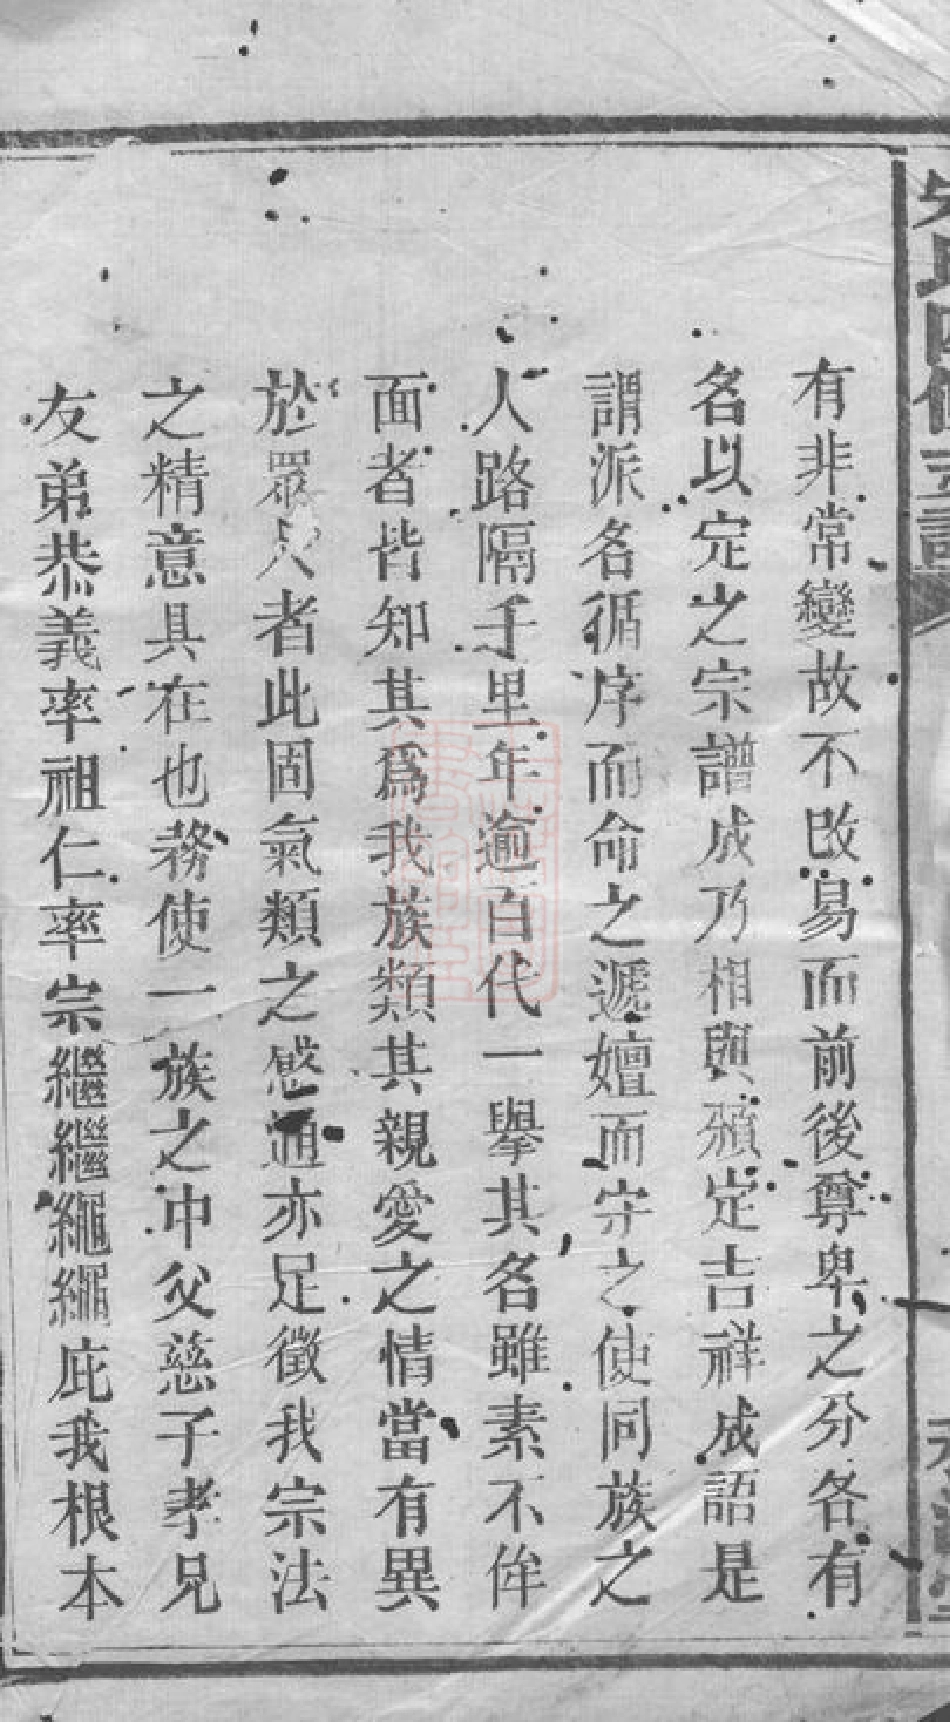 有非常變故不改易而前後尊卑之分各有
名以定之宗譜成乃相與頒定吉祥成語是
謂派名循序而命之遞嬗而守之使同族之
人路隔千里年逾百代一舉其名雖素不侔
面者皆知其爲我族類其親愛之情當有異
於眾人者此固氣類之感通亦足徵我宗法
之精意具在也務使一族之中父慈子孝兄
友弟恭義率祖仁率宗繼繼繩繩庇我根本